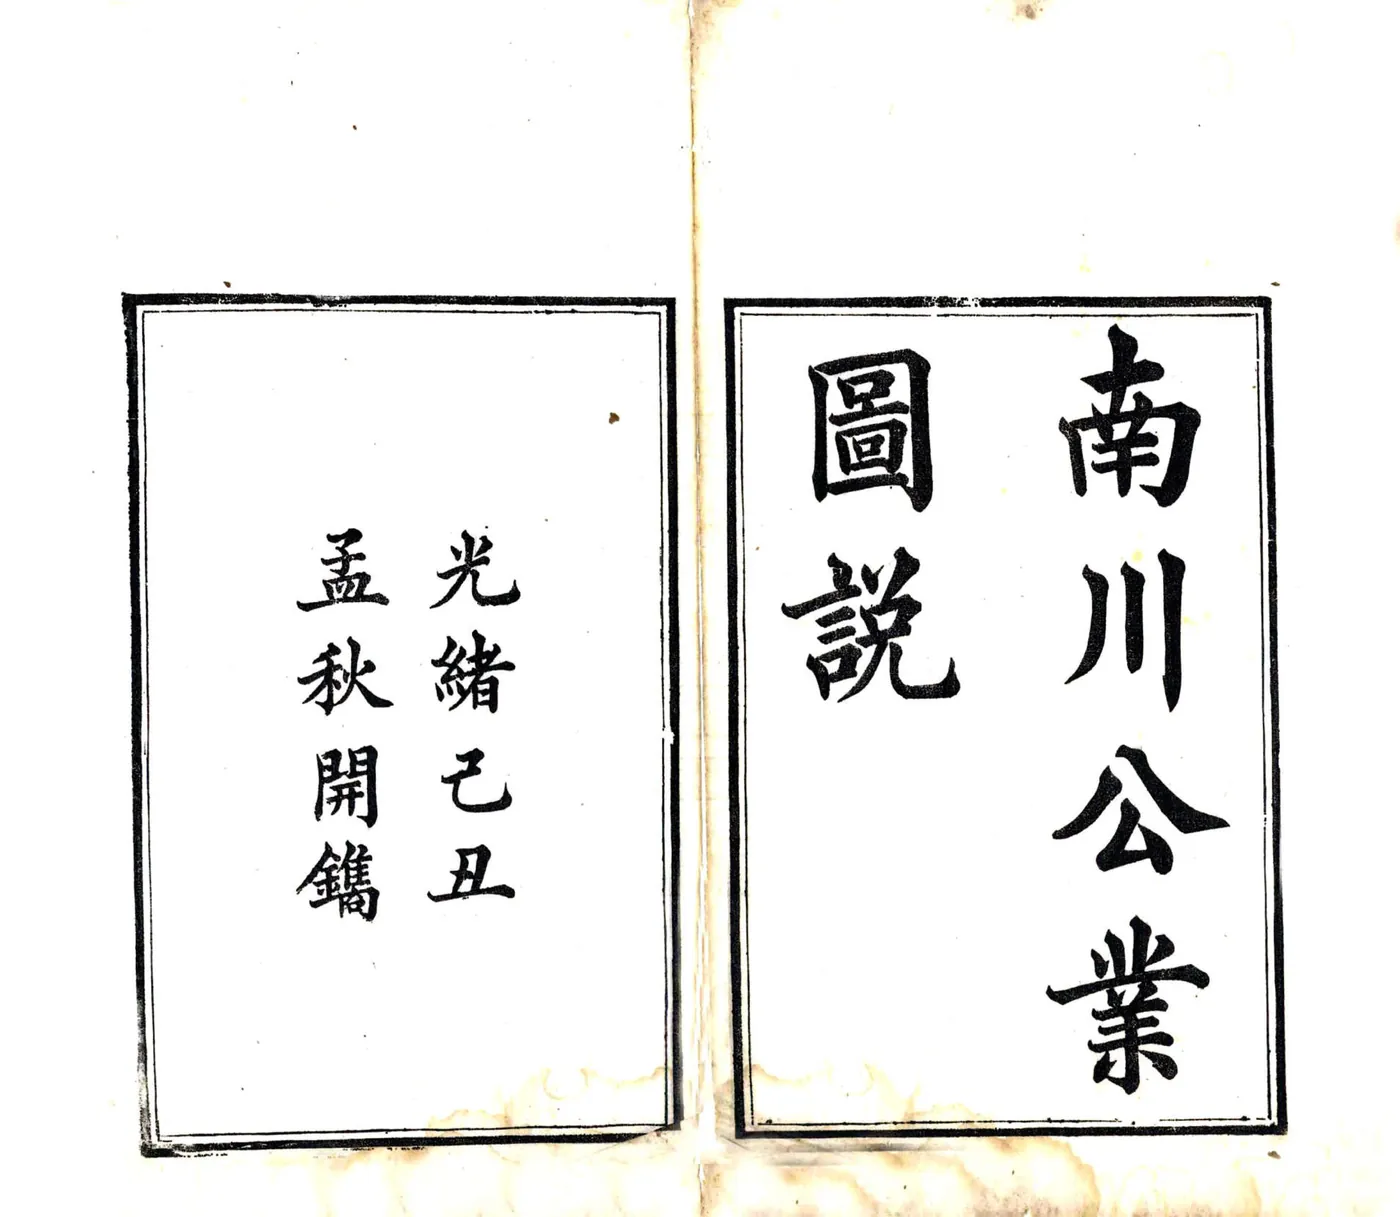 南川公業
圖説
光緒己丑
孟秋開鐫